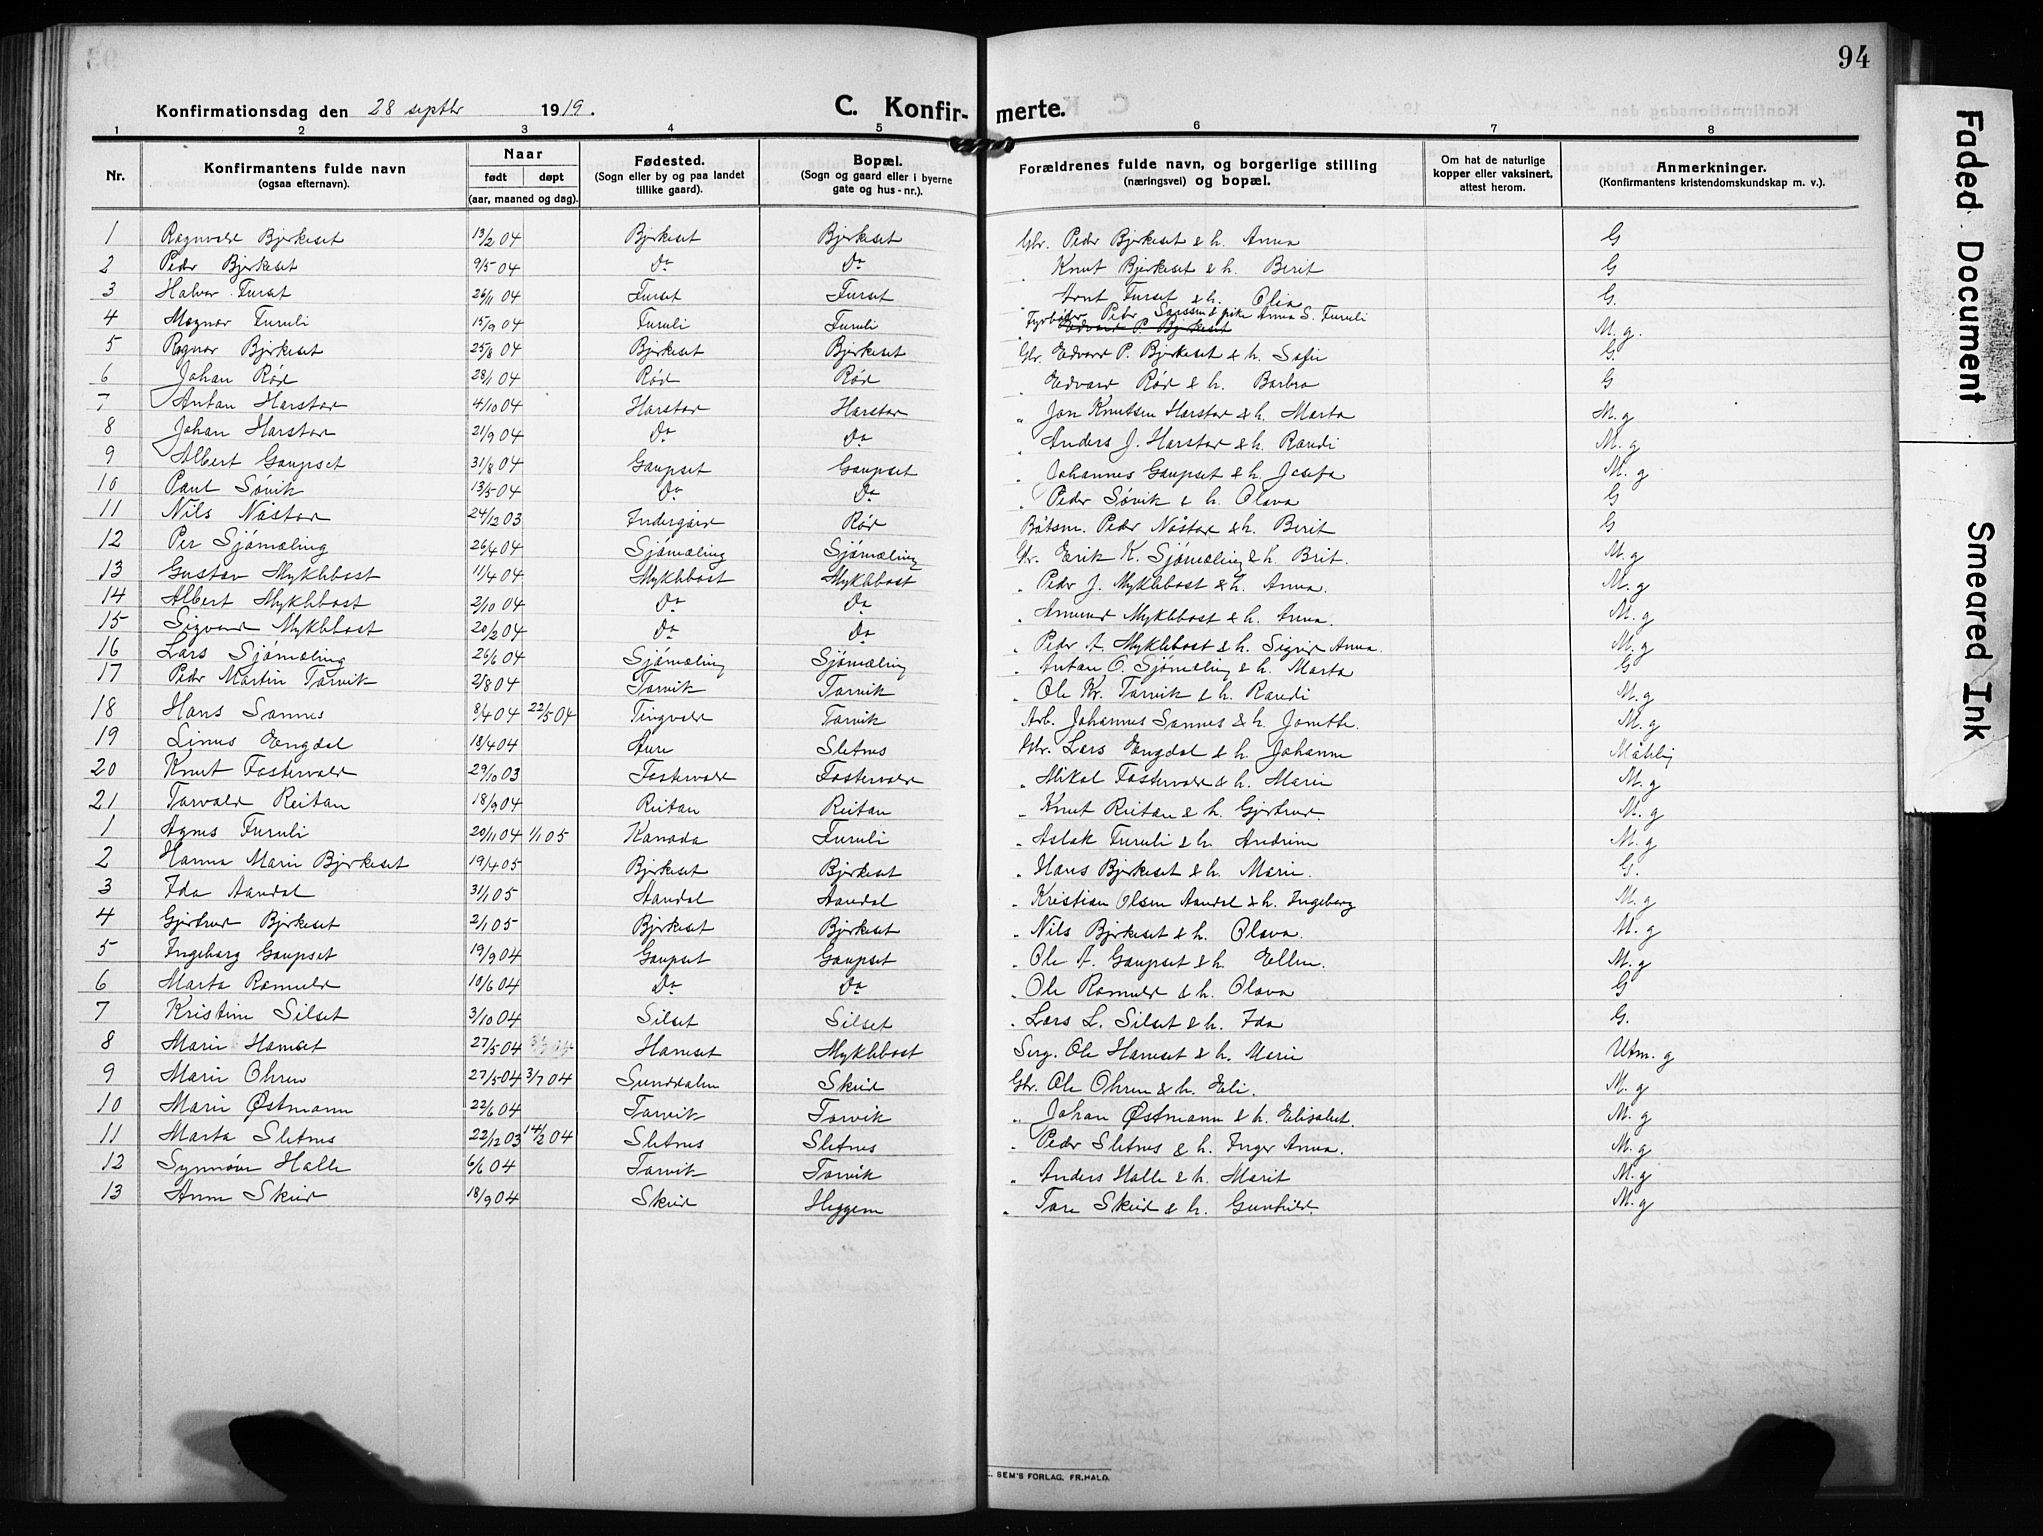 94
Faded Document
Smeared Ink
Konfirmationsdag den 28 septbr 1919.
C. Konfir- merte.
1 2 3 4 5 6 7 8
Nr. Konfirmantens fulde navn (ogsaa efternavn). Naar født døpt (aar, maaned og dag). Fødested. (Sogn eller by og paa landet tillike gaard). Bopæl. (Sogn og gaard eller i byerne gate og hus-nr.). Forældrenes fulde navn, og borgerlige stilling (næringsvei) og bopæl. Om hat de naturlige kopper eller vaksinert, attest herom. Anmerkninger. (Konfirmantens kristendomskundskap m. v.).
1 Ragnvald Bjerkeset 13/2 04 Bjerkeset Bjerkeset Gbr. Peder Bjerkeset & h. Anna G
2 Peder Bjerkeset 9/5 04 Do Do " Knut Bjerkeset & h. Berit G
3 Halvor Furset 26/11 04 Furset Furset " Arnt Furset & h. Olia G.
4 Magnar Furuli 15/9 04 Furuli Furuli Fyrbøter Peder Sarssen & pike Anna S. Furuli M. g.
Edvard P. Bjerkeset
5 Ragnar Bjerkeset 25/8 04 Bjerkeset Bjerkeset Gbr. Edvard P. Bjerkeset & h. Sofie G.
6 Johan Rød 28/1 04 Rød Rød " Edvard Rød & h. Barbro G
7 Anton Harstad 4/10 04 Harstad Harstad " Jon Knutsen Harstad & h. Marta M. g
8 Johan Harstad 21/9 04 Do Do " Anders J. Harstad & h. Randi M. g
9 Albert Gaupset 31/8 04 Gaupset Gaupset " Johannes Gaupset & h. Josefa M. g
10 Paul Søvik 13/5 04 Do Do " Peder Søvik & h. Olava G
11 Nils Nåstad 24/12 03 Indergård Rød Båtsm. Peder Nåstad & h. Berit G
12 Per Sjømæling 26/4 04 Sjømæling Sjømæling Gbr. Erik K. Sjømæling & h. Brit. M. g
13 Gustav Myklebost 11/4 04 Myklebost Myklebost " Peder J. Myklebost & h. Anna. M. g
14 Albert Myklebost 2/10 04 Do Do " Amund Myklebost & h. Anna. M. g
15 Sigvard Myklebost 20/2 04 Do Do " Peder A. Myklebost & h. Sigrid Anna. M. g
16 Lars Sjømæling 26/6 04 Sjømæling Sjømæling " Anton O. Sjømæling & h. Marta G
17 Peder Martin Torvik 2/8 04 Torvik Torvik " Ole Kr. Torvik & h. Randi M. g
18 Hans Sannes 8/4 04 22/5 04 Tingvold Torvik Arb. Johannes Sannes & h. Jonette. M. g
19 Linus Engdal 18/4 04 Aure Sletnes Gbr. Lars Engdal & h. Johanne Måtelig
20 Knut Fostervold 29/10 03 Fostervold Fostervold " Mikal Fostervold & h. Marie M. g
21 Torvald Reitan 18/9 04 Reitan Reitan " Knut Reitan & h. Gjertrud M. g
1 Agnes Furuli 20/11 04 1/1 05 Kanada Furuli " Aslak Furuli & h. Andrine M. g
2 Hanna Marie Bjerkeset 19/4 05 Bjerkeset Bjerkeset " Hans Bjerkeset & h. Marie. G.
3 Ida Aandal 31/1 05 Aandal Aandal " Kristian Olsen Aandal & h. Ingeborg M. g
4 Gjertrud Bjerkeset 2/1 05 Bjerkeset Bjerkeset " Nils Bjerkeset & h. Olava. M. g
5 Ingeborg Gaupset 19/9 04 Gaupset Gaupset " Ole A. Gaupset & h. Ellen. M. g
6 Marta Ramvold 10/6 04 Do Do " Ole Ramvold & h. Olava G
7 Kristine Silset 3/10 04 Silset Silset " Lars L. Silset & h. Ida G.
8 Marie Hamset 27/5 04 Hamset Myklebost Serg. Ole Hamset & h. Marie Utm. g
9 Marie Ohren 27/5 04 3/7 04 Sunddalen Skeid Gbr. Ole Ohren & h. Eli. M. g
10 Marie Østmann 22/6 04 Torvik Torvik " Johan Østmann & h. Elisabet. M. g
11 Marta Sletnes 22/12 03 14/2 04 Sletnes Sletnes " Peder Sletnes & h. Inger Anna. M. g
12 Synnøve Halle 6/6 04 Torvik Torvik " Anders Halle & h. Marit M. g
13 Anne Skeid 18/9 04 Skeid Heggem " Tore Skeid & h. Gunhild. M. g
SEM'S FORLAG. FR.HALD.